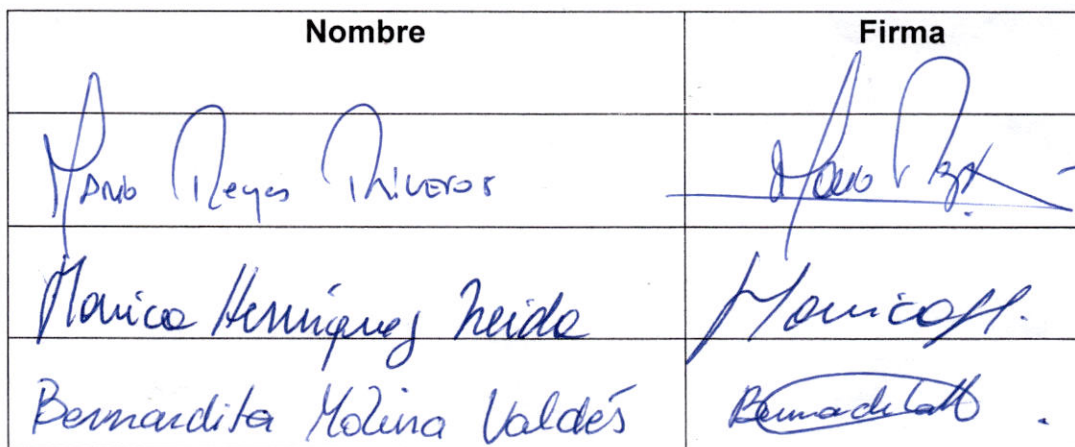 Nombre Firma
Mario Reyes Riveros Mario
Monica Henríquez Neida Monica H.
Bernardita Molina Valdés